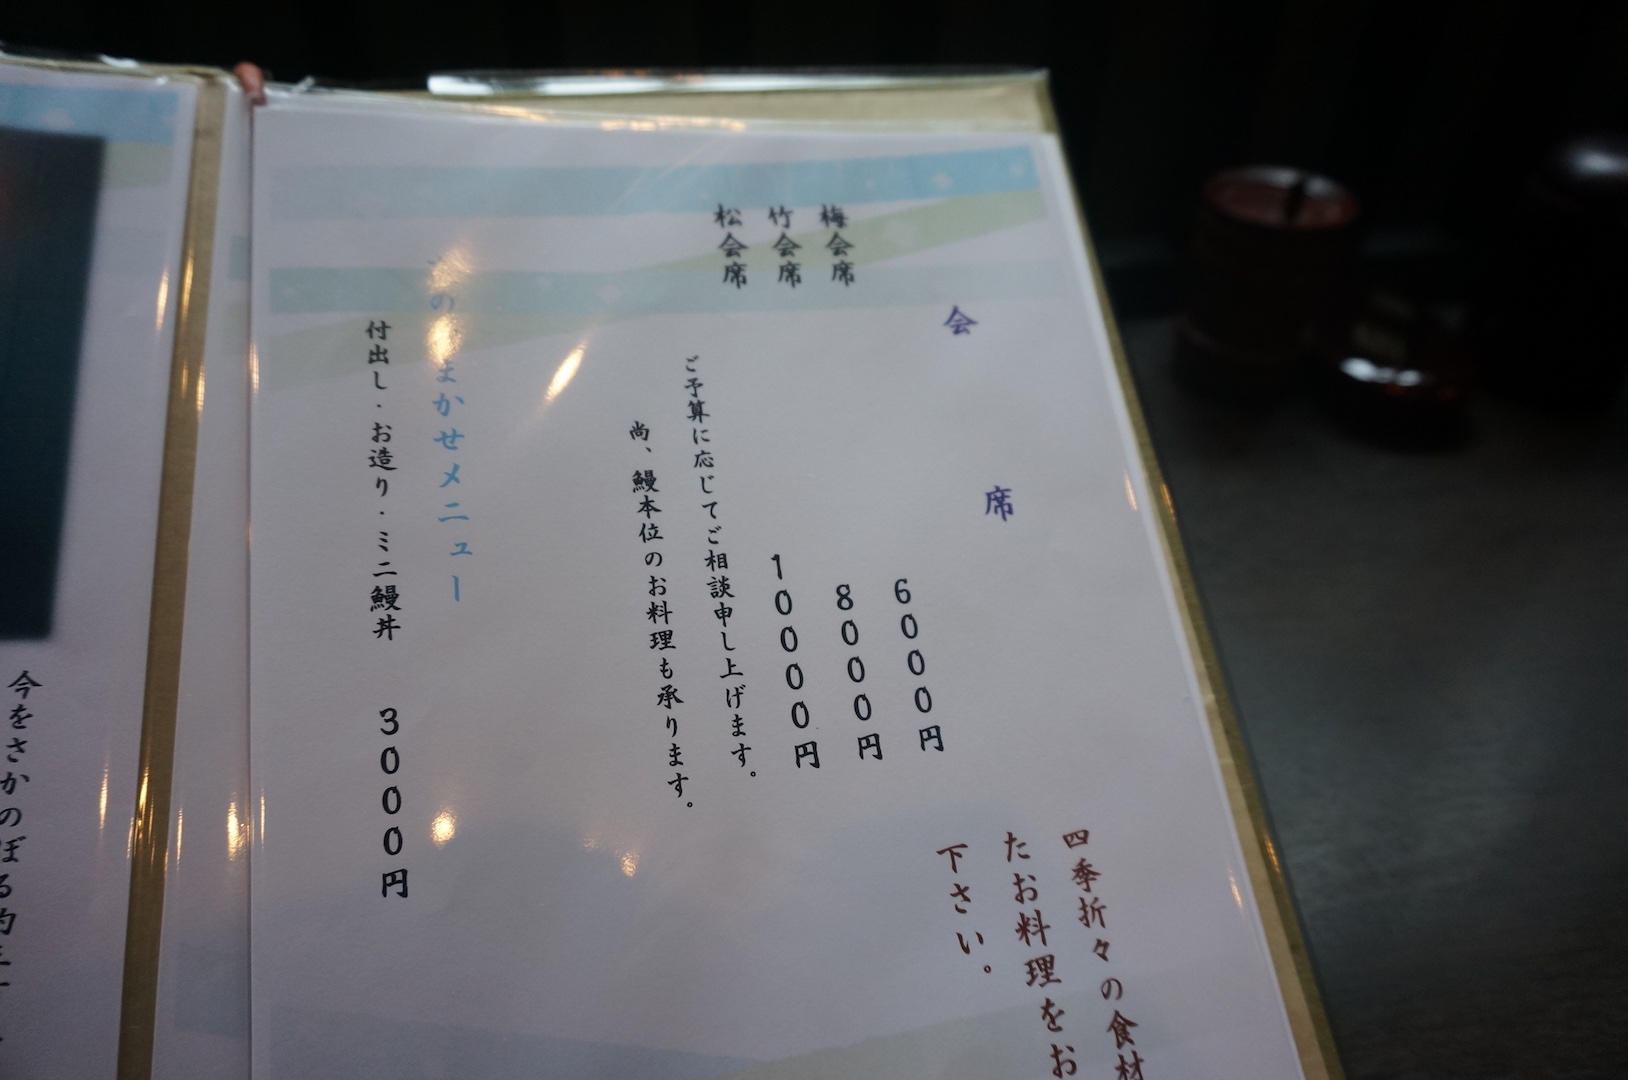 会席
四季折々の食材
たお料理をお
下さい。
梅会席 6000円
竹会席 8000円
松会席 10000円
ご予算に応じてご相談申し上げます。
尚、鰻本位のお料理も承ります。
まかせメニュー
付出し・お造り・ミニ鰻丼 3000円
今をさかのぼる約